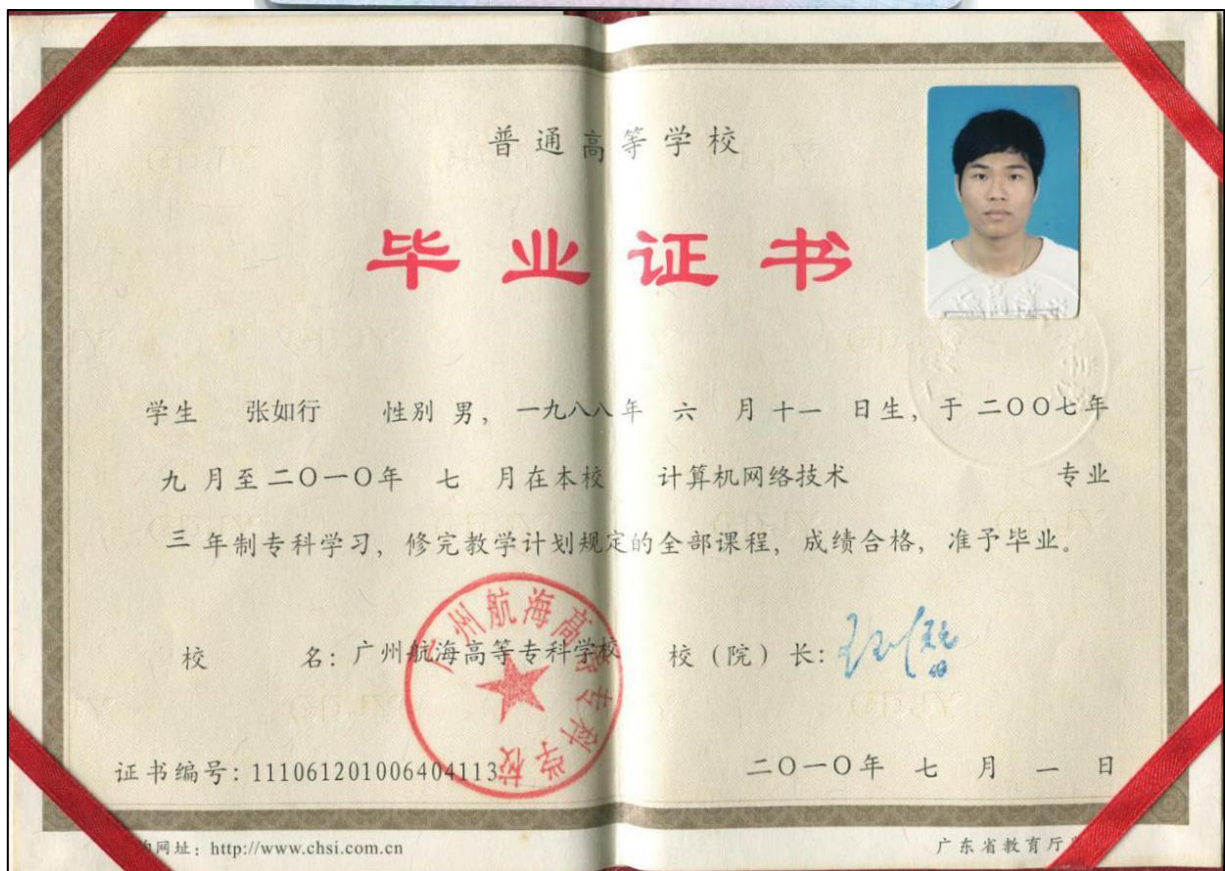 普通高等学校
毕业证书
学生 张如行 性别 男，一九八八年 六 月 十一 日生，于 二〇〇七年
九 月至 二〇一〇年 七 月在本校 计算机网络技术 专业
三 年制专科学习，修完教学计划规定的全部课程，成绩合格，准予毕业。
校 名：广州航海高等专科学校 校（院）长：
广州航海高等专科学校
证书编号：111061201006404113 二〇一〇年 七 月 一 日
网址：http://www.chsi.com.cn 广东省教育厅